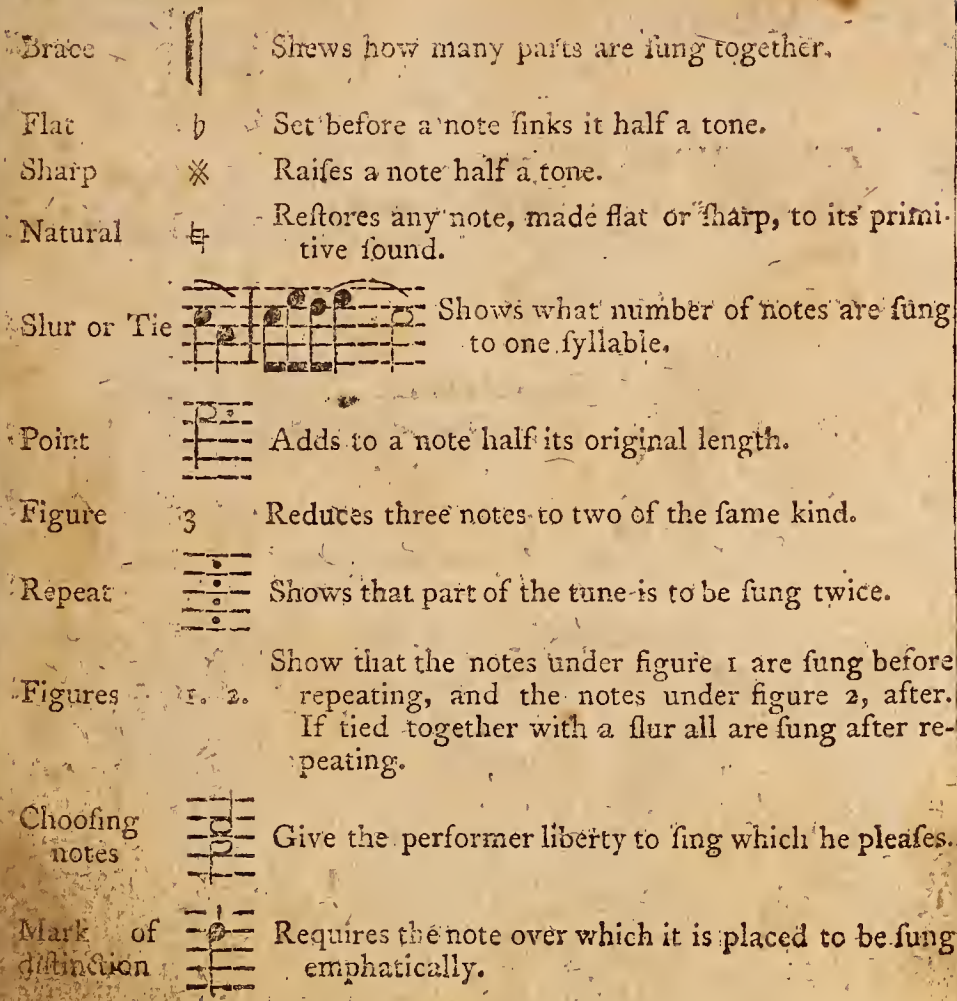 Brace Shews how many parts are ſung together.
Flat ♭ Set before a note ſinks it half a tone.
Sharp ※ Raiſes a note half a tone.
Natural ♮ Reſtores any note, made flat or ſharp, to its primi-
tive ſound.
Slur or Tie Shows what number of notes are ſung
to one ſyllable.
Point Adds to a note half its original length.
Figure 3 Reduces three notes to two of the ſame kind.
Repeat Shows that part of the tune is to be ſung twice.
Figures 1. 2. Show that the notes under figure 1 are ſung before
repeating, and the notes under figure 2, after.
If tied together with a ſlur all are ſung after re-
peating.
Chooſing
notes Give the performer liberty to ſing which he pleaſes.
Mark of
diſtinction Requires the note over which it is placed to be ſung
emphatically.